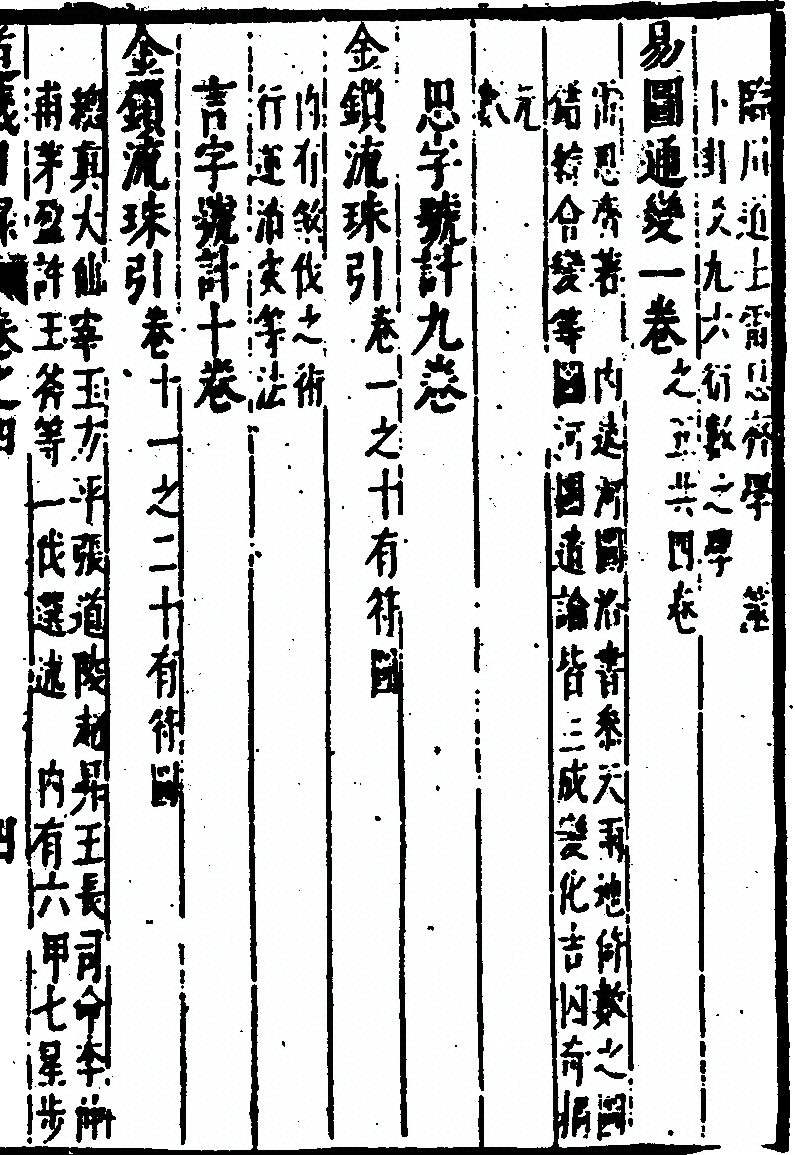 臨川道士雷思齊學　筮
卜卦爻九六衍數之學
易圖通變一卷之五共四卷
雷思齊著　內述河圖洛書參天兩地倚數之圖
錯綜會變等圖河圖遺論皆三成變化吉凶奇耦
元
數
思字號計九卷
金鎖流珠引卷一之十有符圖
內有敘伐之術
行運治病等法
言字號計十卷
金鎖流珠引卷十一之二十有符圖
總真大仙宰王方平張道陵趙昇王長司命李仲
甫茅盈許王等一伐選述　內有六甲七星步
四